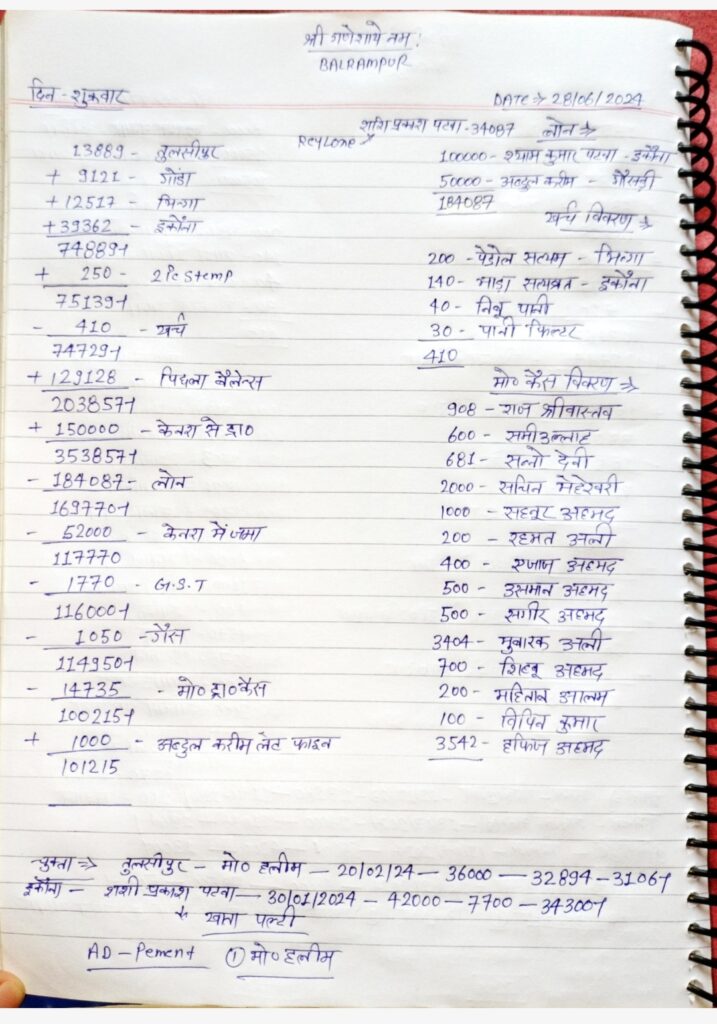 श्री गणेशाये नमः
BALRAMPUR
दिन - शुक्रवार
DATE => 28/06/2024
13889 - तुलसीपुर
+ 9121 - गोंडा
+ 12517 - भिन्गा
+ 39362 - इकौना
74889/-
+ 250 - 2 Pc Stemp
75139/-
- 410 - खर्च
74729/-
+ 129128 - पिछला बैलेन्स
203857/-
+ 150000 - केनरा से ड्रा०
353857/-
- 184087 - लोन
169770/-
- 52000 - केनरा में जमा
117770
- 1770 - G.S.T
116000/-
- 1050 - गैस
114950/-
- 14735 - मो० ड्रा० कैस
100215/-
+ 1000 - अब्दुल करीम लेट फाइन
101215
शशि प्रकाश पटवा - 34087 लोन =>
ReyLone
100000 - श्याम कुमार पटवा - इकौना
50000 - अब्दुल करीम - गैसड़ी
184087
खर्च विवरण =>
200 - पेट्रोल सत्यम - भिन्गा
140 - भाड़ा सत्यव्रत - इकौना
40 - निबू पानी
30 - पानी फिल्टर
410
मो० कैस विवरण =>
908 - राज श्रीवास्तव
600 - समीउल्लाह
681 - सल्लो देवी
2000 - सचिन मेहेश्वरी
1000 - सहबूर अहमद
200 - रहमत अली
400 - एजाज अहमद
500 - उसमान अहमद
500 - सगीर अहमद
3404 - मुबारक अली
700 - शिब्बू अहमद
200 - महिताब आलम
100 - विपिन कुमार
3542 - हफिज अहमद
चुक्ता => तुलसीपुर - मो० हलीम - 20/02/24 - 36000 - 32894 - 3106/-
इकौना - शशी प्रकाश पटवा - 30/01/2024 - 42000 - 7700 - 34300/-
खाता पल्टी
AD - Pement ① मो० हलीम